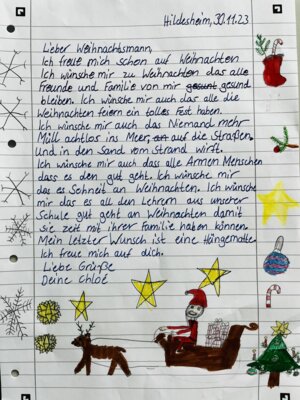 Hildesheim, 30.11.23
Lieber Weihnachtsmann,
Ich freue mich schon auf Weihnachten
Ich wünsche mir zu Weihnachten das alle
Freunde und Familie von mir gesunt gesund
bleiben. Ich wünsche mir auch das alle die
Weihnachten feiern ein tolles Fest haben.
Ich wünsche mir auch das Niemand mehr
Müll achtlos ins Meer, auf die Straßen
und in den Sand vom Strand wirft.
Ich wünsche mir auch dass alle Armen Menschen
dass es den gut geht. Ich wünsche mir
das es Schneit an Weihnachten. Ich wünsche
mir das es all den Lehrern aus unserer
Schule gut geht an Weihnachten damit
sie zeit mit ihrer Familie haben können.
Mein letzter Wunsch ist eine Hängematte.
Ich freue mich auf dich.
Liebe Grüße
Deine Chloé